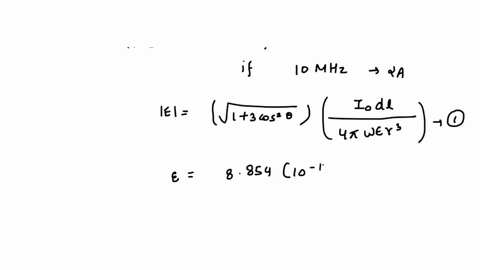 if 10 MHz → 2A
|E| = (√1+3cos²θ) (I₀dl / 4πωεr³) → ①
ε = 8.854 (10⁻¹